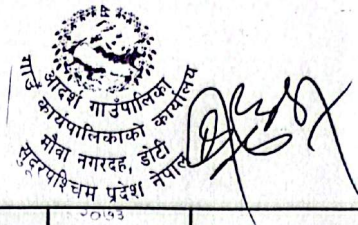 आदर्श गाउँपालिका
गाउँ कार्यपालिकाको कार्यालय
मौवा नगरदह, डोटी
सुदूरपश्चिम प्रदेश नेपाल
२०७३